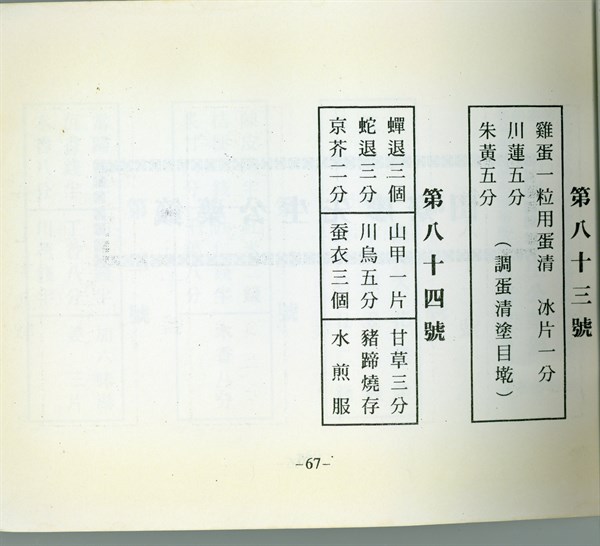 第八十三號
雞蛋一粒用蛋清　冰片一分
川蓮五分
朱黃五分　（調蛋清塗目墘）
第八十四號
蟬退三個　山甲一片　甘草三分
蛇退三分　川烏五分　豬蹄燒存
京芥二分　蚕衣三個　水煎服
-67-